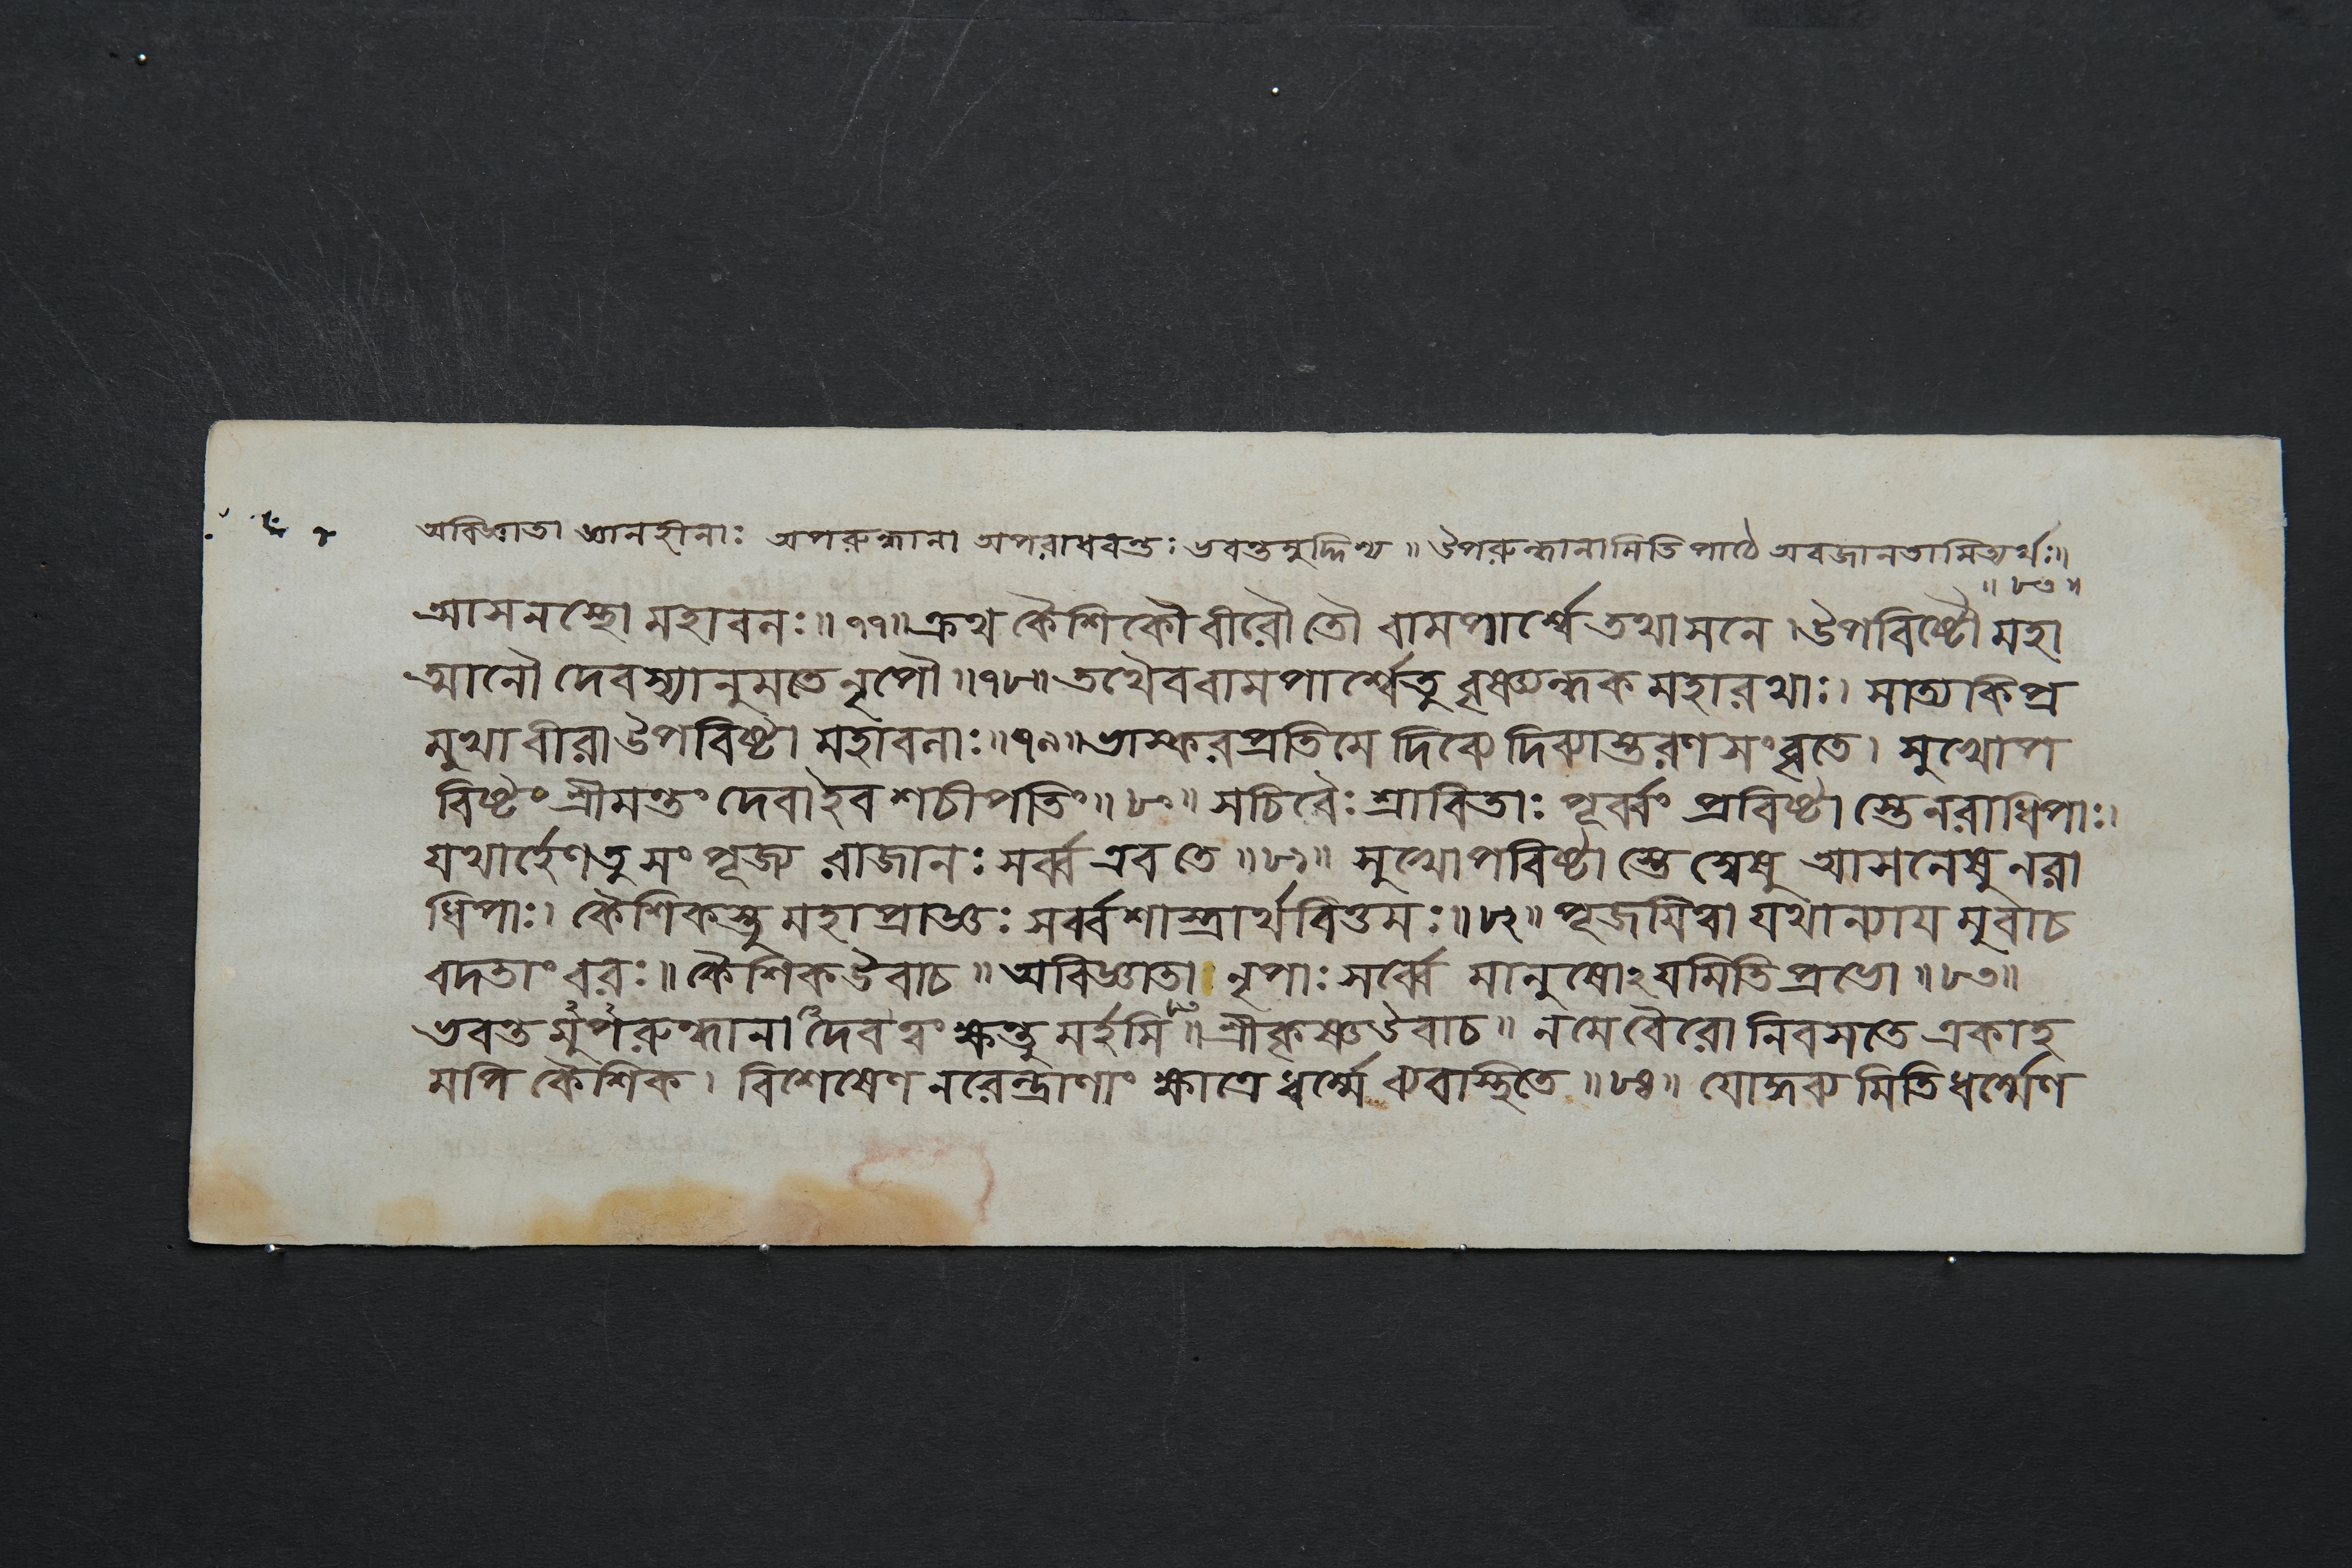 অবিজ্ঞাতা জ্ঞানহীনাঃ অপরুন্ধানা অপরাধবন্তঃ ভবন্তমুদ্দিশ্য ॥ উপরুন্ধানামিতি পাঠে অবজানতামিত্যর্থঃ॥
॥ ৮৩ ॥
আসনস্থো মহাবলঃ॥ ৭৭॥ ক্রথ কৈশিকৌ বীরৌ তৌ বামপার্শ্বে তথাসনে । উপবিষ্টৌ মহা
ত্মানৌ দেবস্যানুমতে নৃপৌ ॥৭৮॥ তথৈব বামপার্শ্বে তু বৃষ্ণ্যন্ধক মহারথাঃ। সাত্যকি প্র
মুখা বীরা উপবিষ্টা মহাবলাঃ॥৭৯॥ ভাস্করপ্রতিমে দিব্যে দিব্যাস্তরণ সংবৃতে । সুখোপ
বিষ্টং শ্রীমন্তং দেবা ইব শচীপতিং॥ ৮০॥ সচিবৈঃ শ্রাবিতাঃ পূর্ব্বং প্রবিষ্টা স্তে নরাধিপাঃ।
যথার্হেণ তু সংপূজ্য রাজানঃ সর্ব্ব এব তে ॥৮১॥ সুখোপবিষ্টা স্তে স্বেষু আসনেষু নরা
ধিপাঃ। কৈশিকস্তু মহাপ্রাজ্ঞঃ সর্ব্বশাস্ত্রার্থবিত্তমঃ॥৮২॥ পূজয়িত্বা যথান্যায় মুবাচ
বদতাং বরঃ॥ কৈশিক উবাচ ॥ অবিজ্ঞাতা নৃপাঃ সর্ব্বে মানুষোঽয়মিতি প্রভো ॥৮৩॥
ভবন্ত মুপরুন্ধানা দেব ত্বং ক্ষন্তু মর্হসি ॥ শ্রীকৃষ্ণ উবাচ॥ ন মে বৈরো নিবসতে একাহ
মপি কৈশিক । বিশেষেণ নরেন্দ্রাণাং ক্ষাত্রে ধর্ম্মে ব্যবাস্থিতে ॥৮৪॥ যোদ্ধব্য মিতি ধর্ম্মেণ